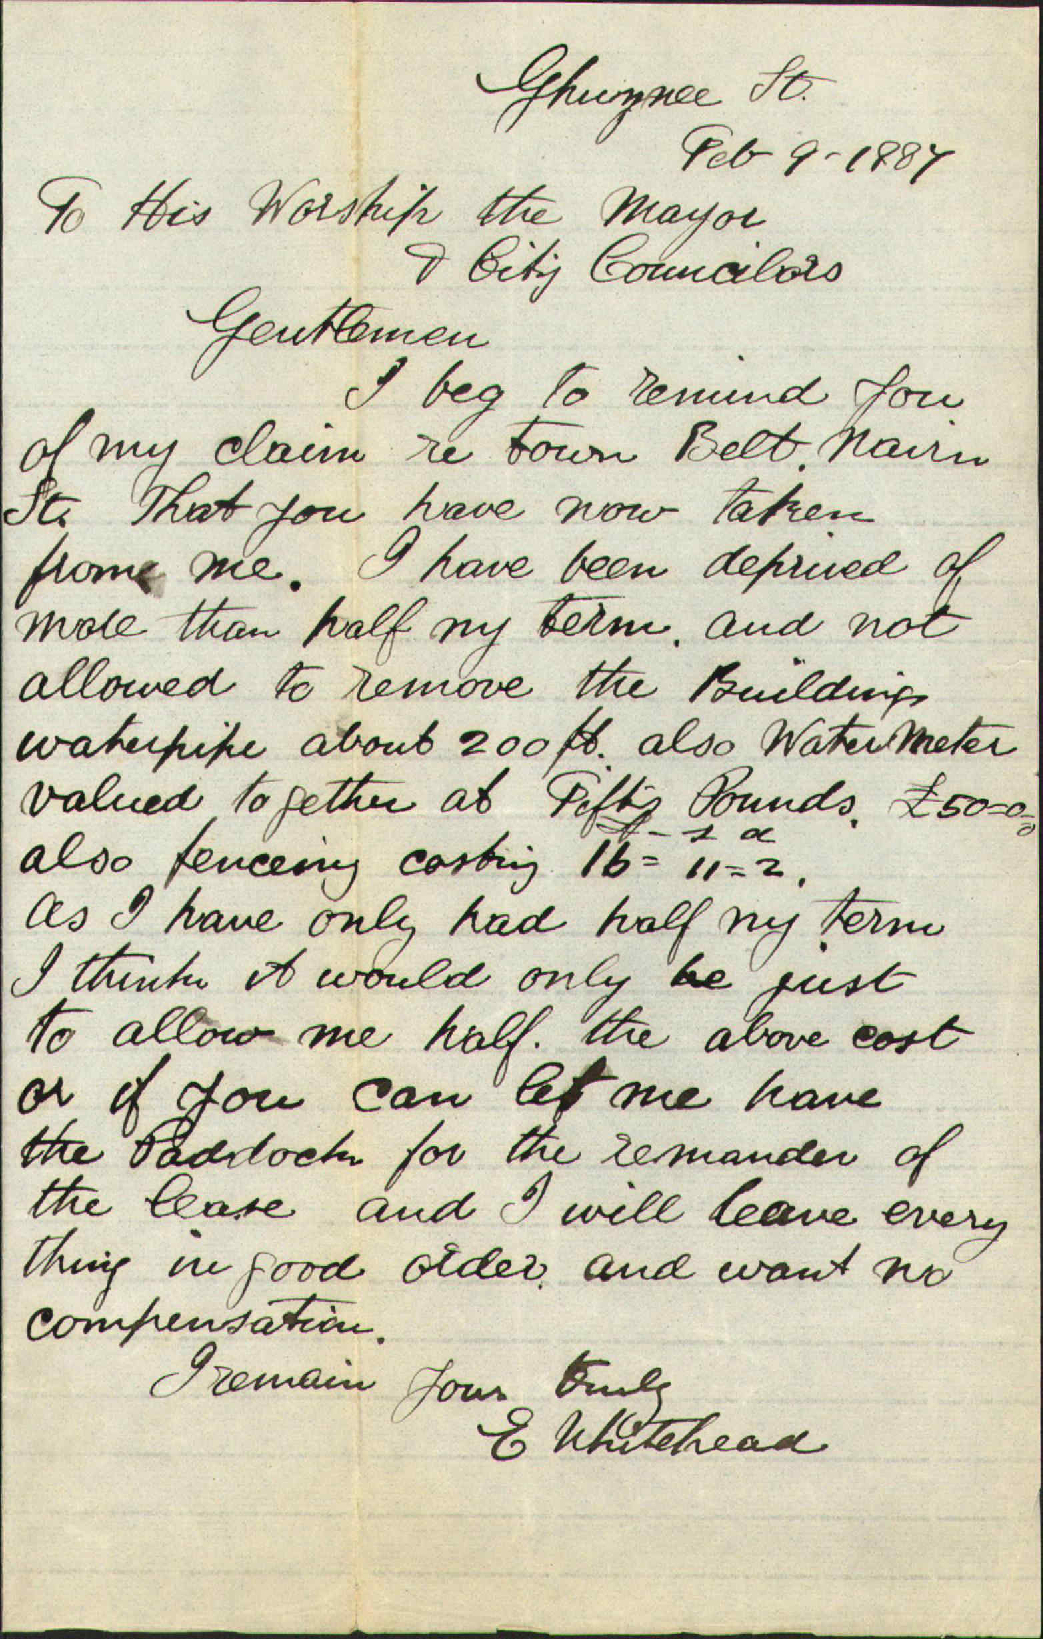 Ghuznee St.
Feb 9-1887
To His Worship the Mayor
& City Councilors
Gentlemen
I beg to remind you
of my claim re town Belt. Nairn
St. That you have now taken
from me. I have been deprived of
more than half my term. and not
allowed to remove the Buildings
waterpipe about 200 ft. also Water Meter
valued together at Fifty Pounds. £50-0-0
£ - s d
also fenceing costing 16 = 11 = 2.
As I have only had half my term
I think it would only be just
to allow me half. the above cost
or if you can let me have
the Paddock for the remander of
the lease and I will leave every
thing in good order. and want no
compensation.
I remain your truly
E Whitehead